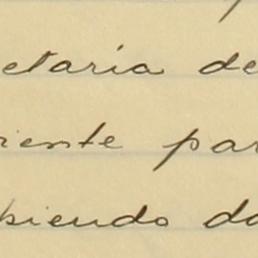 etaria de
riente par
biendo da